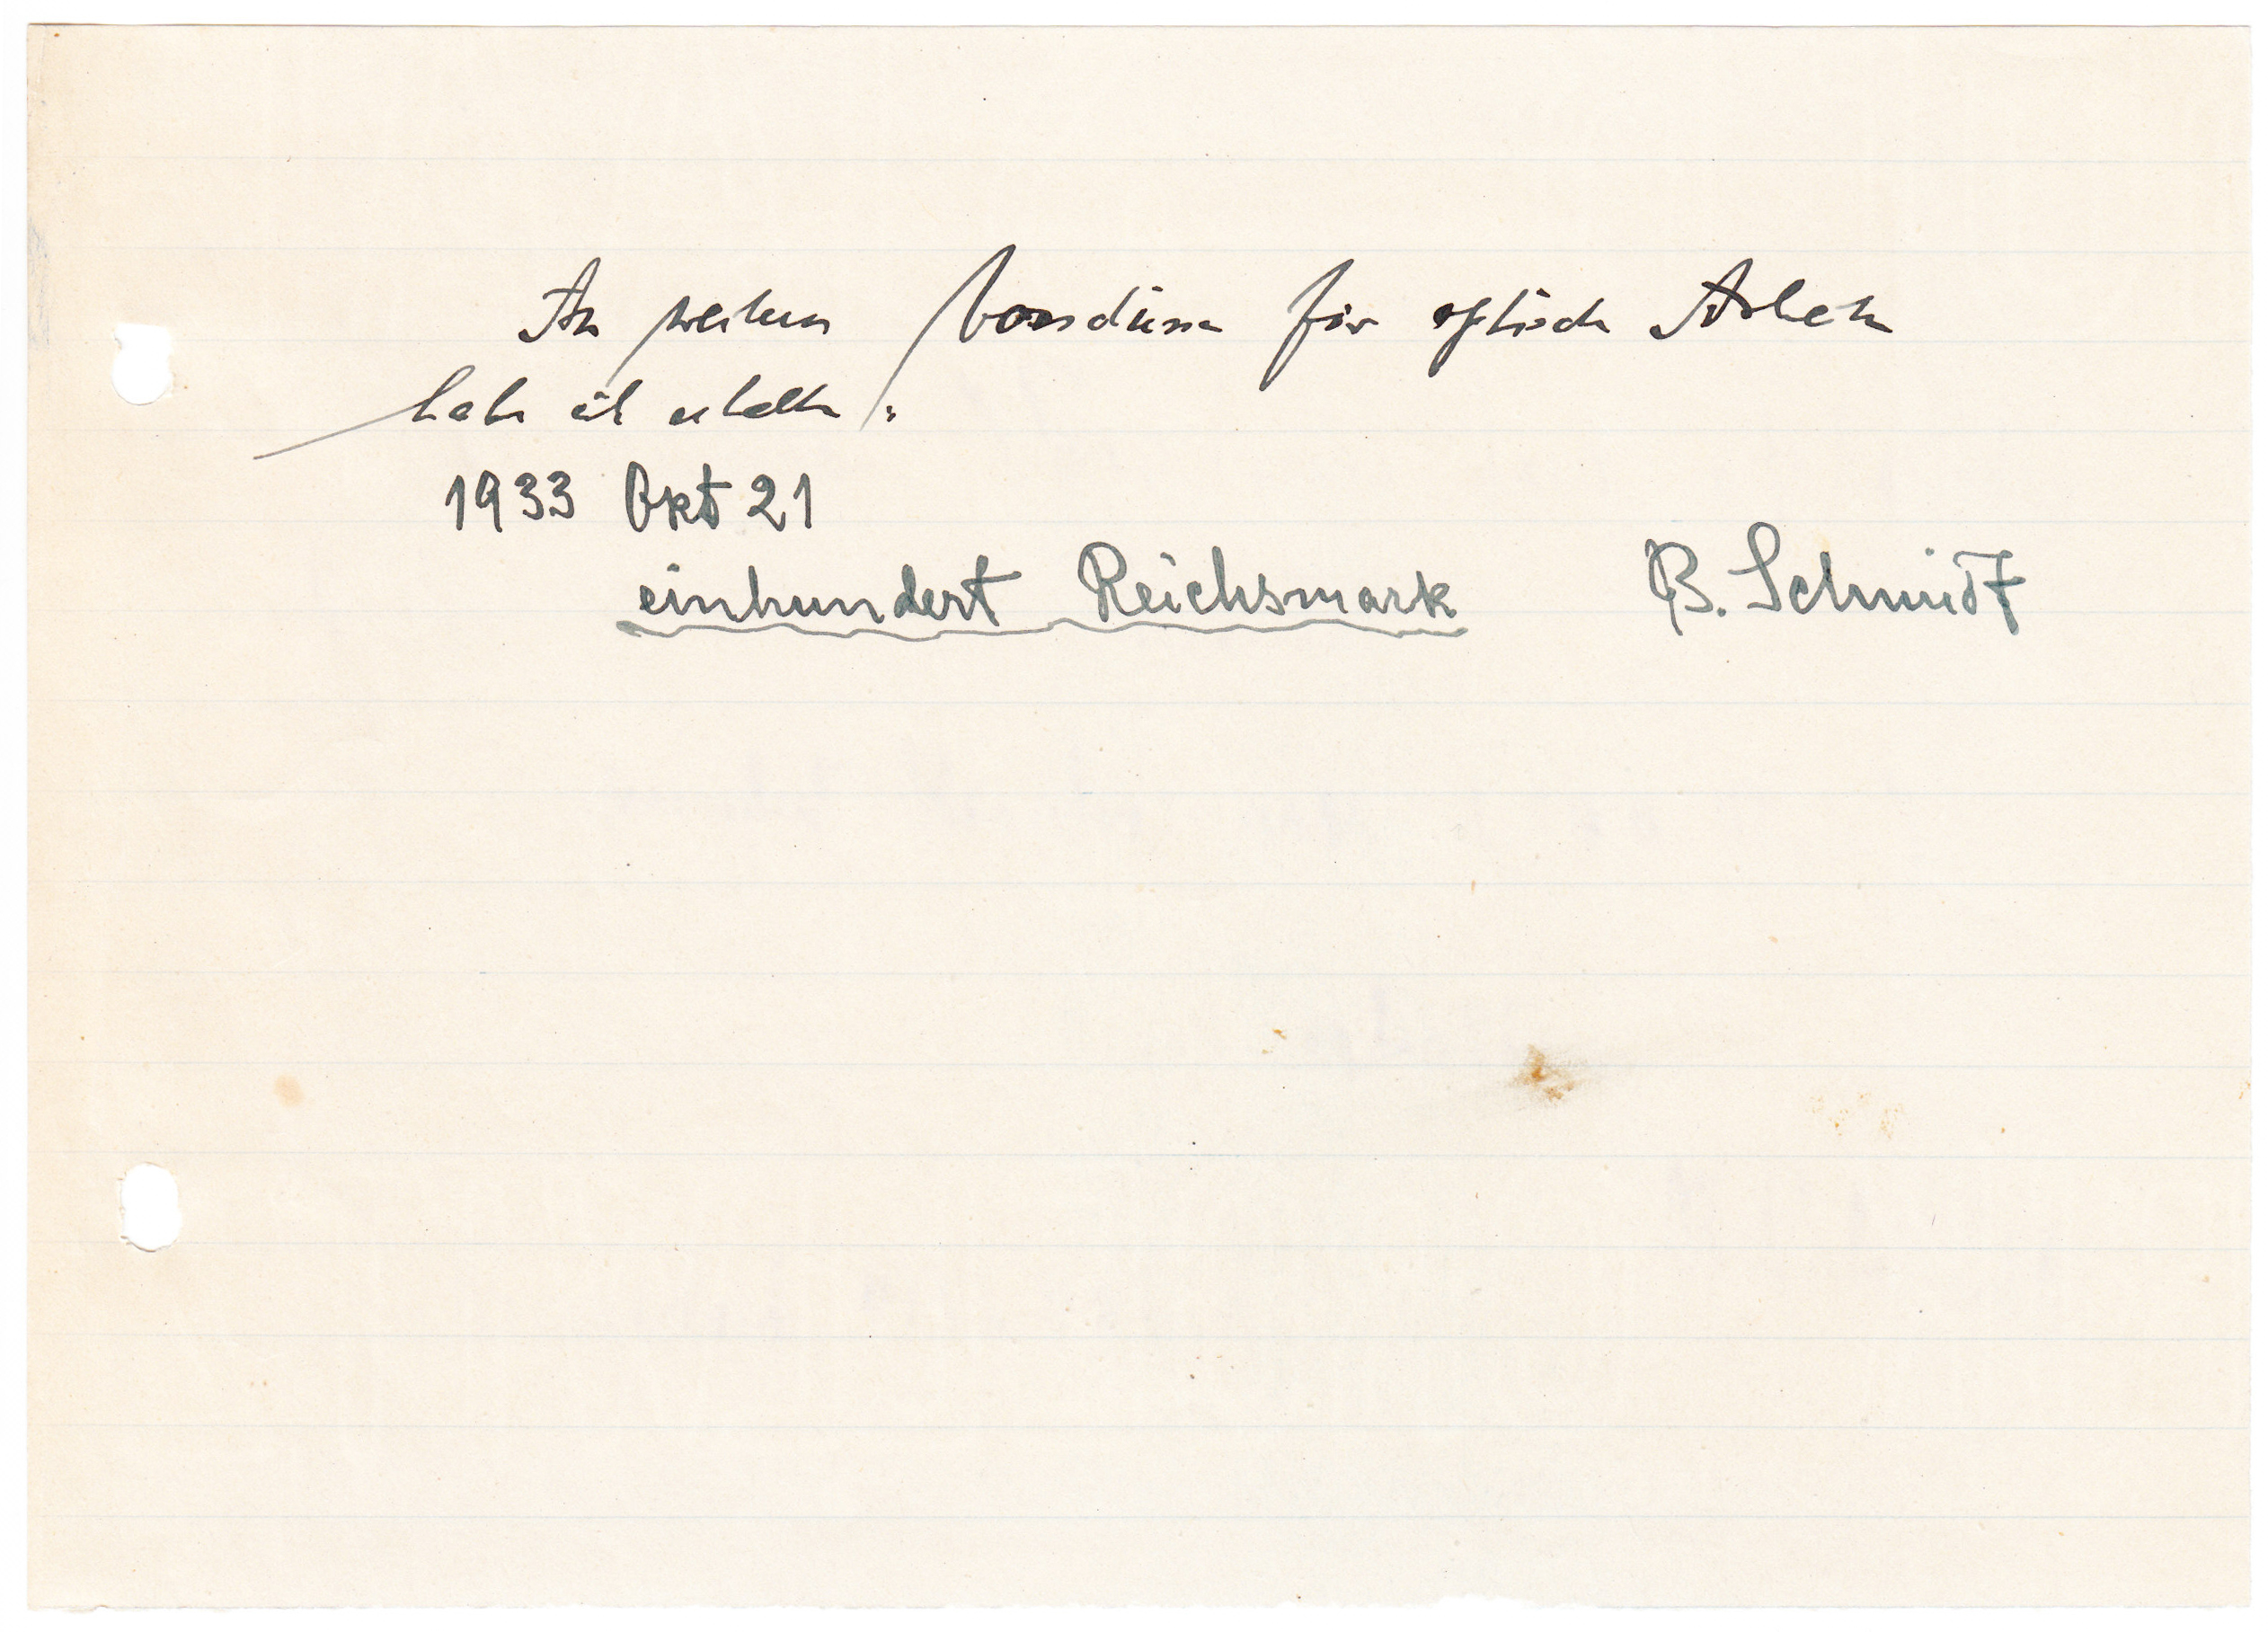 An weiteren Vorschüssen für optische Arbeiten
habe ich erhalten:
1933 Okt 21
einhundert Reichsmark B. Schmidt